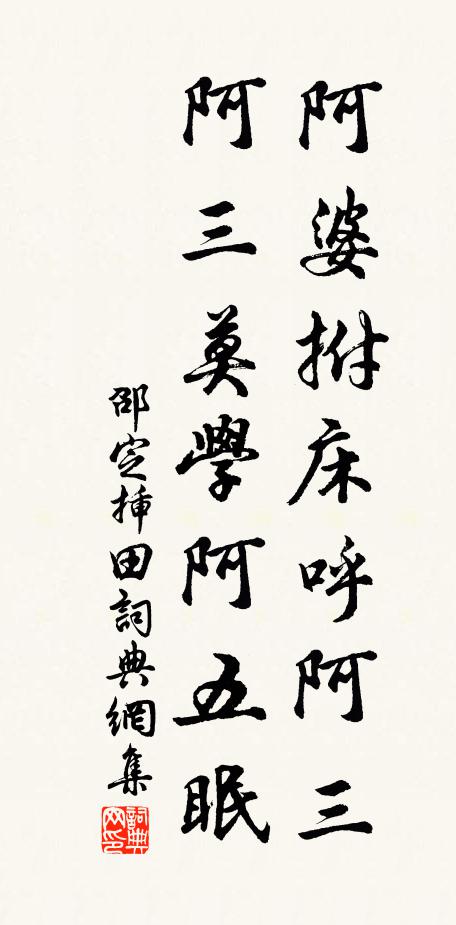 阿婆拊床呼阿三
阿三莫學阿五眠
邵定插田詞典網集
詞典网印